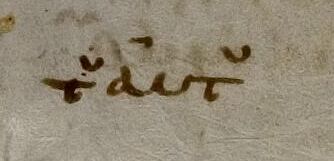 τ̆ ἀυτ̆